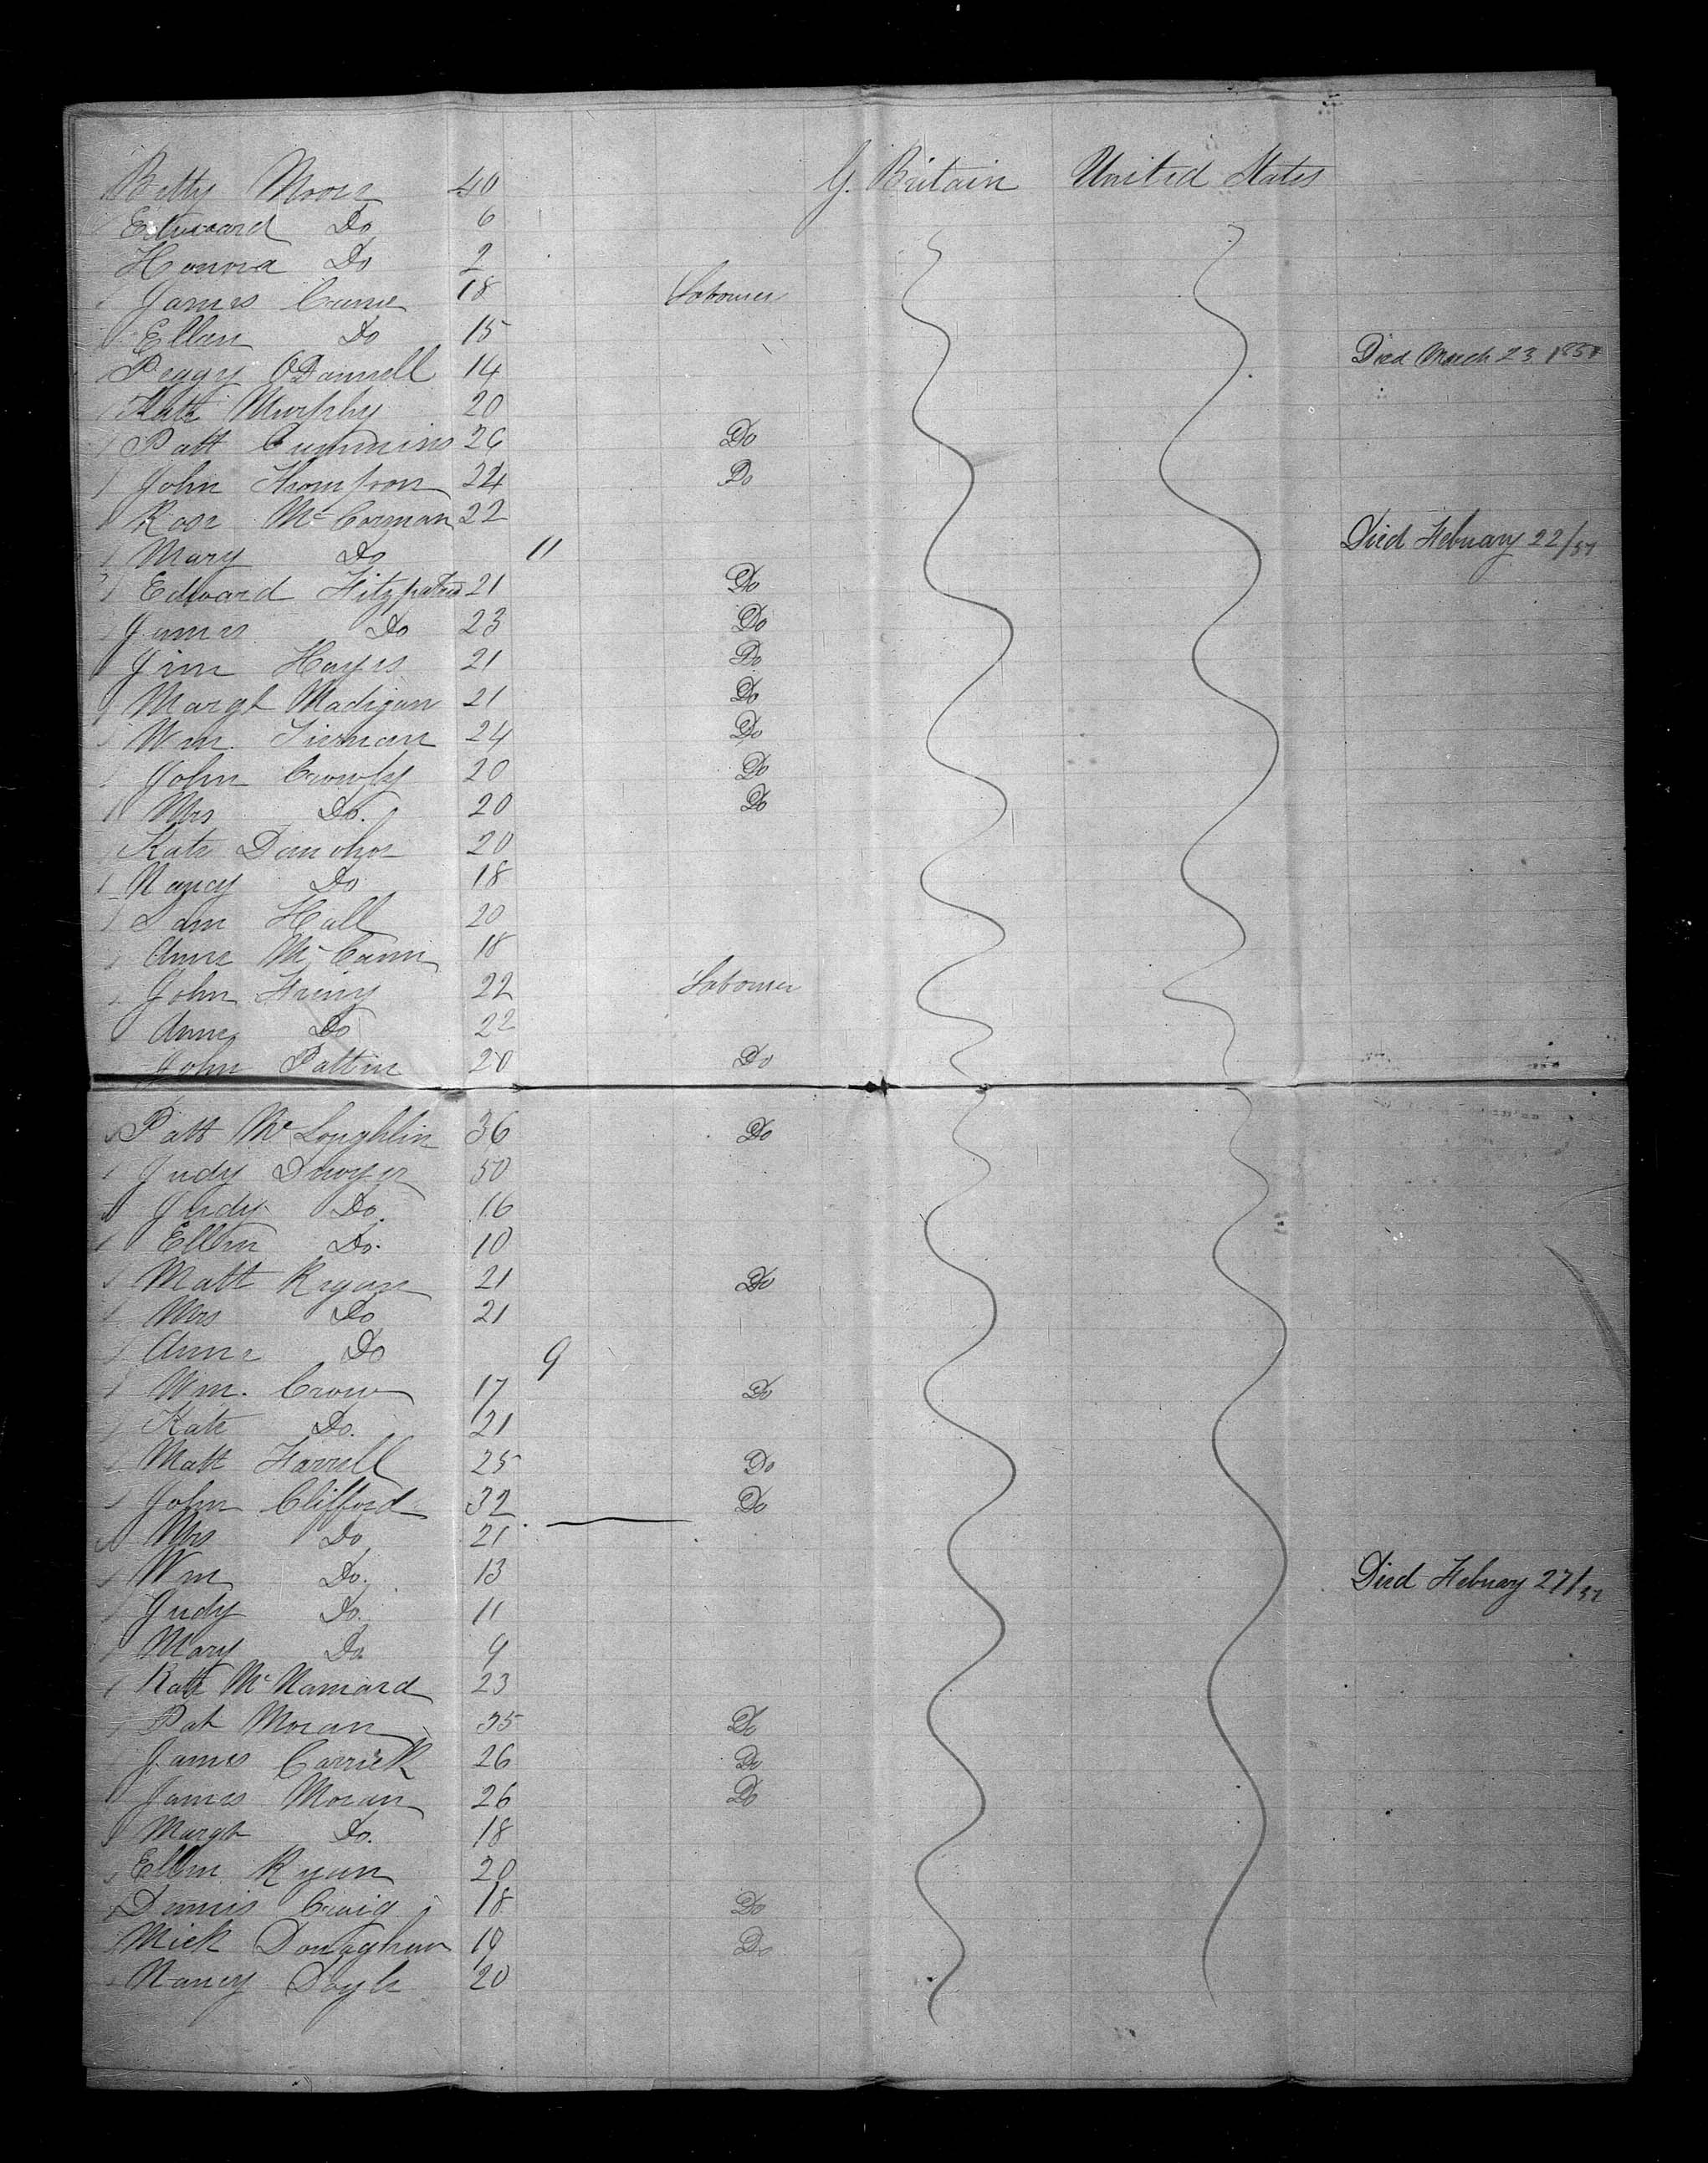 Betty Moore 40 G. Britain United States
Edward Do 6
Honora Do 2
James Crane 18 Labourer
Ellen Do 15 Died March 23 1851
Peggy O'Donnell 14
Kate Murphy 20
Patt Cummins 26 Do
John Thompson 24 Do
Rose McCorman 22
Mary Do 11 Died Febuary 22/51
Edward Fitzpatrick 21 Do
James Do 23 Do
Jim Hayes 21 Do
Margt Madigan 21 Do
Wm. Tiernan 24 Do
John Crowly 20 Do
Mrs Do. 20 Do
Kate Donohoe 20
Nancy Do 18
Sam Hall 20
Anne McCann 18
John 22 Labourer
Anne Do 22
John Pattin 20 Do
Patt McLoughlin 36 Do
Judy Dwyer 50
Judy Do. 16
Ellen Do. 10
Matt Ryan 21 Do
Mrs Do 21
Anne Do 9
Wm. Crow 17 Do
Kate Do. 21
Matt Farrell 25 Do
John Clifford 32 Do
Mrs Do 21
Wm Do. 13 Died Febuary 27/51
Judy Do. 11
Mary Do. 9
Kate McNamara 23
Pat Moran 35 Do
James Carrick 26 Do
James Moran 26 Do
Margt Do. 18
Ellen Ryan 20
Dennis Craig 18 Do
Mick Donaghue 19 Do
Nancy Doyle 20